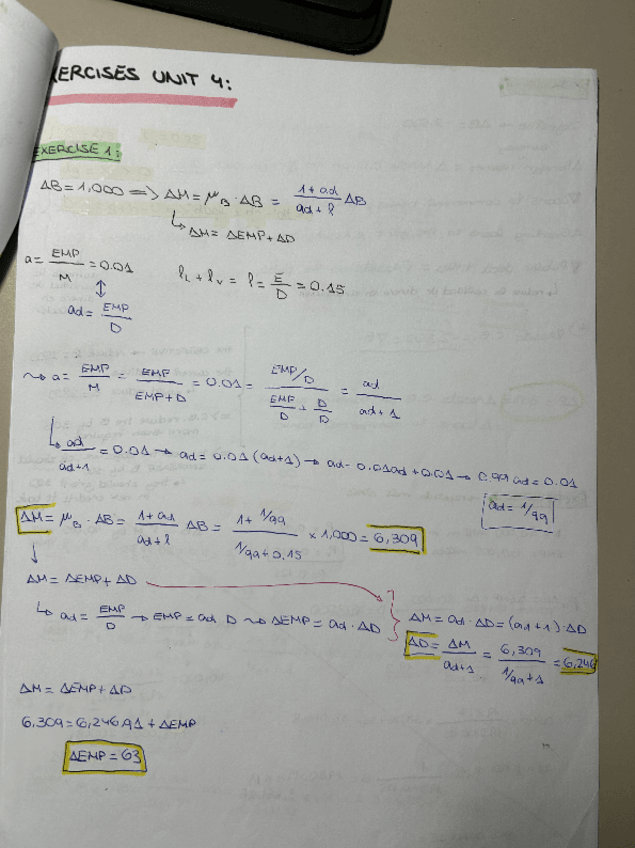 ERCISES UNIT 4:
EXERCISE 1:
ΔB = 1,000 => ΔM = μB · ΔB = (1 + ad)/(ad + l) ΔB
↳ ΔM = ΔEMP + ΔD
a = EMP/M = 0.01
lL + lV = l = E/D = 0.15
↕
ad = EMP/D
~> a = EMP/M = EMP/(EMP + D) = 0.01 = (EMP/D)/(EMP/D + D/D) = ad/(ad + 1)
↳ ad/(ad+1) = 0.01 → ad = 0.01 (ad+1) → ad - 0.01ad + 0.01 → 0.99 ad = 0.01
ad = 1/99
ΔM = μB · ΔB = (1 + ad)/(ad + l) ΔB = (1 + 1/99)/(1/99 + 0.15) × 1,000 = 6,309
↓
ΔM = ΔEMP + ΔD
↳ ad = EMP/D → EMP = ad · D ~> ΔEMP = ad · ΔD
ΔM = ad · ΔD = (ad + 1) · ΔD
ΔD = ΔM/(ad+1) = 6,309/(1/99 + 1) = 6,246
ΔM = ΔEMP + ΔD
6,309 = 6,246,91 + ΔEMP
ΔEMP = 63